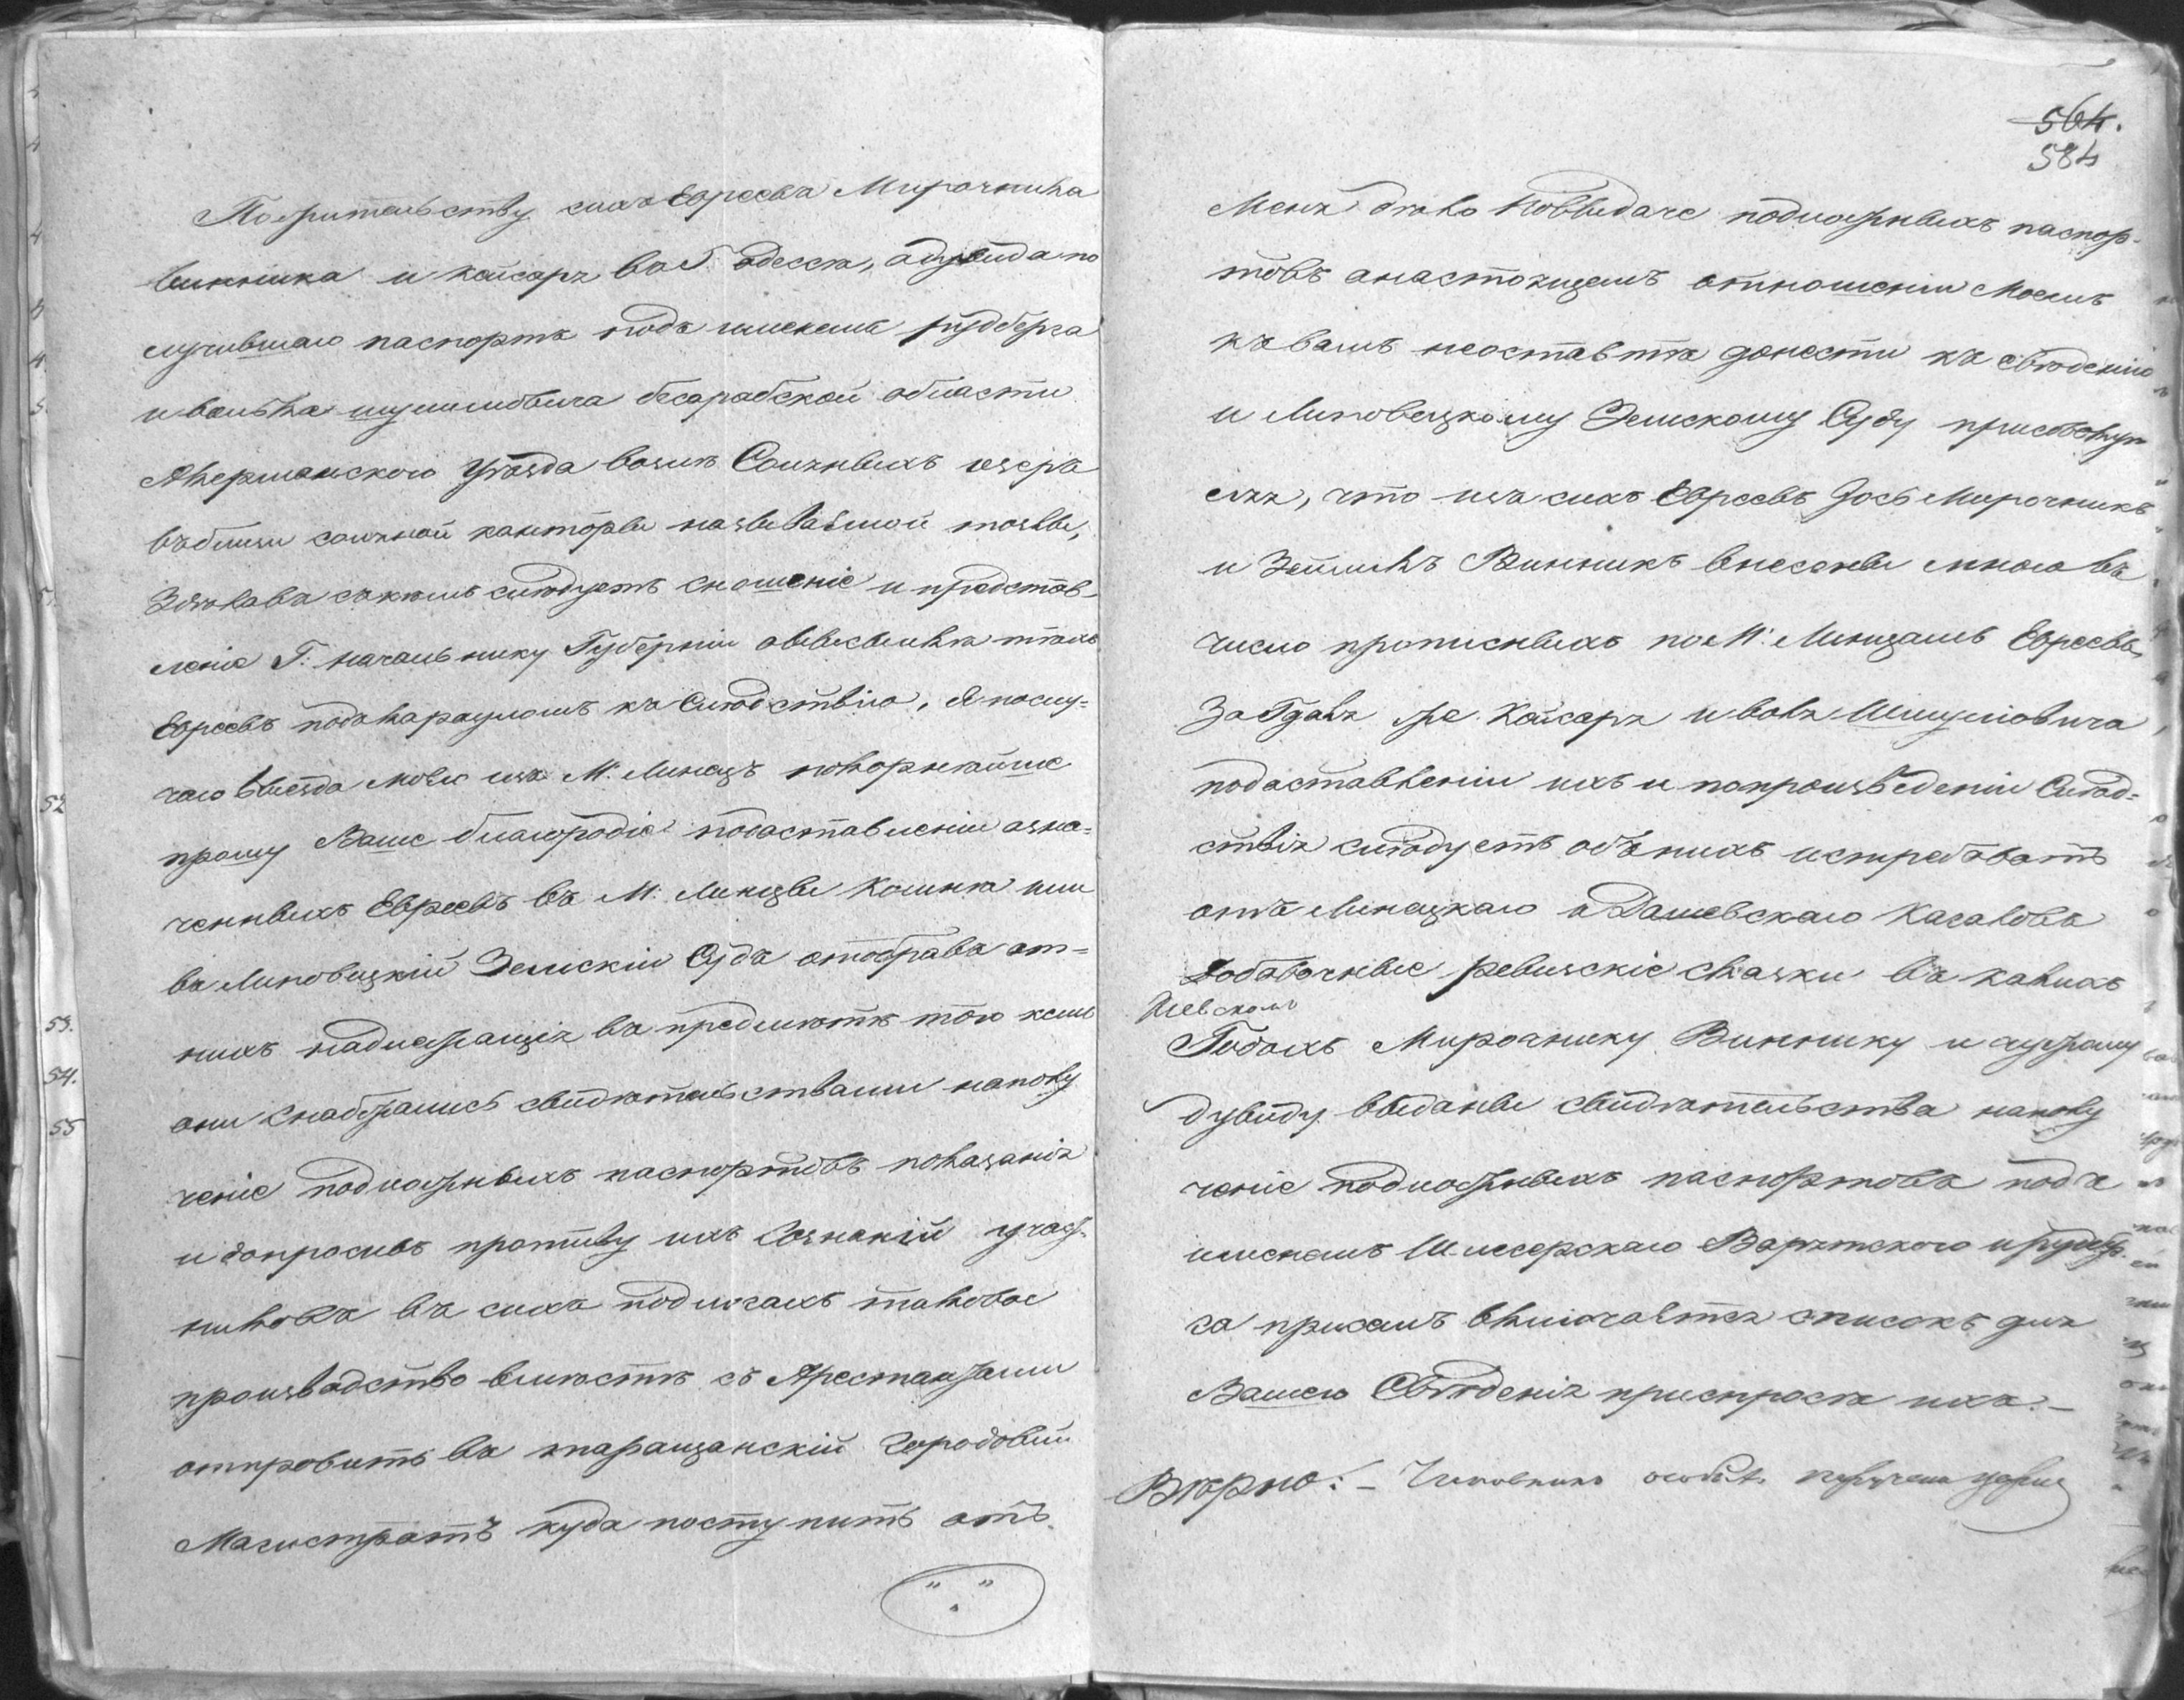 Пожительству сихъ Евреевъ Мирочника
винника и кайсаръ въ г: одесса, адувида по
лучившаго паспортъ подъ именемъ рудберга
и волька шулимовича бесарабской области
Акерманского уѣзда возлѣ Соляныхъ озеръ
въблизи соляной канторы называемой тозлы,
сдѣлавъ скѣмъ слѣдуетъ сношеніе и представ-
леніе Г: начальнику Губерніи овысылкѣ тѣхъ
Евреевъ подъ карауломъ къ Слѣдствію, Я послу-
чаю выезда моего изъ М: Линецъ покорнѣйше
прошу Ваше благородіе подоставленіи озна-
ченныхъ Евреевъ въ М: Линцы Колинѣ или
въ Липовецкій Земскій Судъ отобравъ от-
нихъ надлежащія въ предмѣтѣ того кемъ
они снабжались свидѣтельствами наполу
ченіе подложныхъ паспортовъ показанія
и допросивъ противу ихъ Сознаній участ-
никовъ въ сихъ подлогахъ таковое
производство вмѣстѣ съ Арестантами
отправить въ таращанскій городовый
Магистратъ куда поступитъ отъ
564.
584
Меня дѣло повыдаче подложныхъ паспор-
товъ анастоящемъ отношеніи Моемъ
къ вамъ неоставтѣ донести къ свѣденію
и Липовецкому Земскому Суду присовокуп
ляя, что изъ сихъ Евреевъ Іось Мирочникъ
и Винникъ внесены мною въ
число прописныхъ по М: Линцамъ Евреевъ,
За же Кайсаръ и вовъ Шмулiовича
подоставленіи ихъ и попроизведеніи Слѣд-
ствія слѣдуетъ объ нихъ истребовать
отъ Линецкаго и Дашевскаго Кагаловъ
Добавочные ревизскіе сказки въ какихъ
Годахъ Мирочнику Виннику и
дувиду выданы свидѣтельства наполу
ченіе подложныхъ паспортовъ подъ
именемъ Варятского и рудбер-
га присемъ включается списокъ для
Вашего Свѣденія приспросѣ ихъ.-
Вѣрно:- Чиновникъ особыхъ порученій
52
53.
54.
55